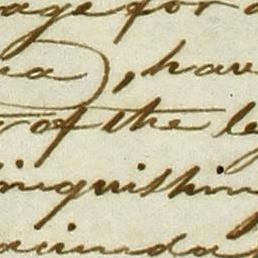 age for a
a, have
of the le
inquishin
acienda